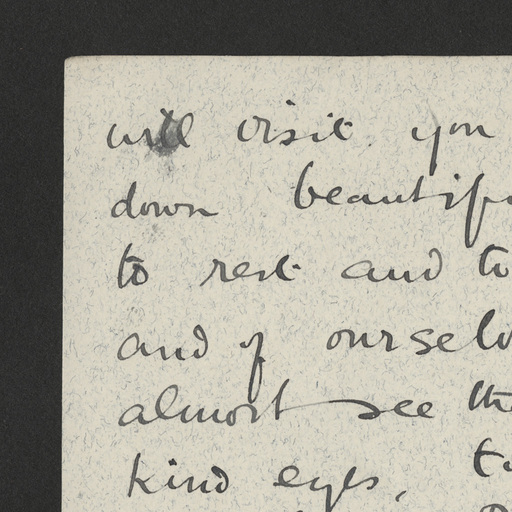 will visit you
down beautifu
to rest and to
and of ourselv
almost see the
kind eyes, to